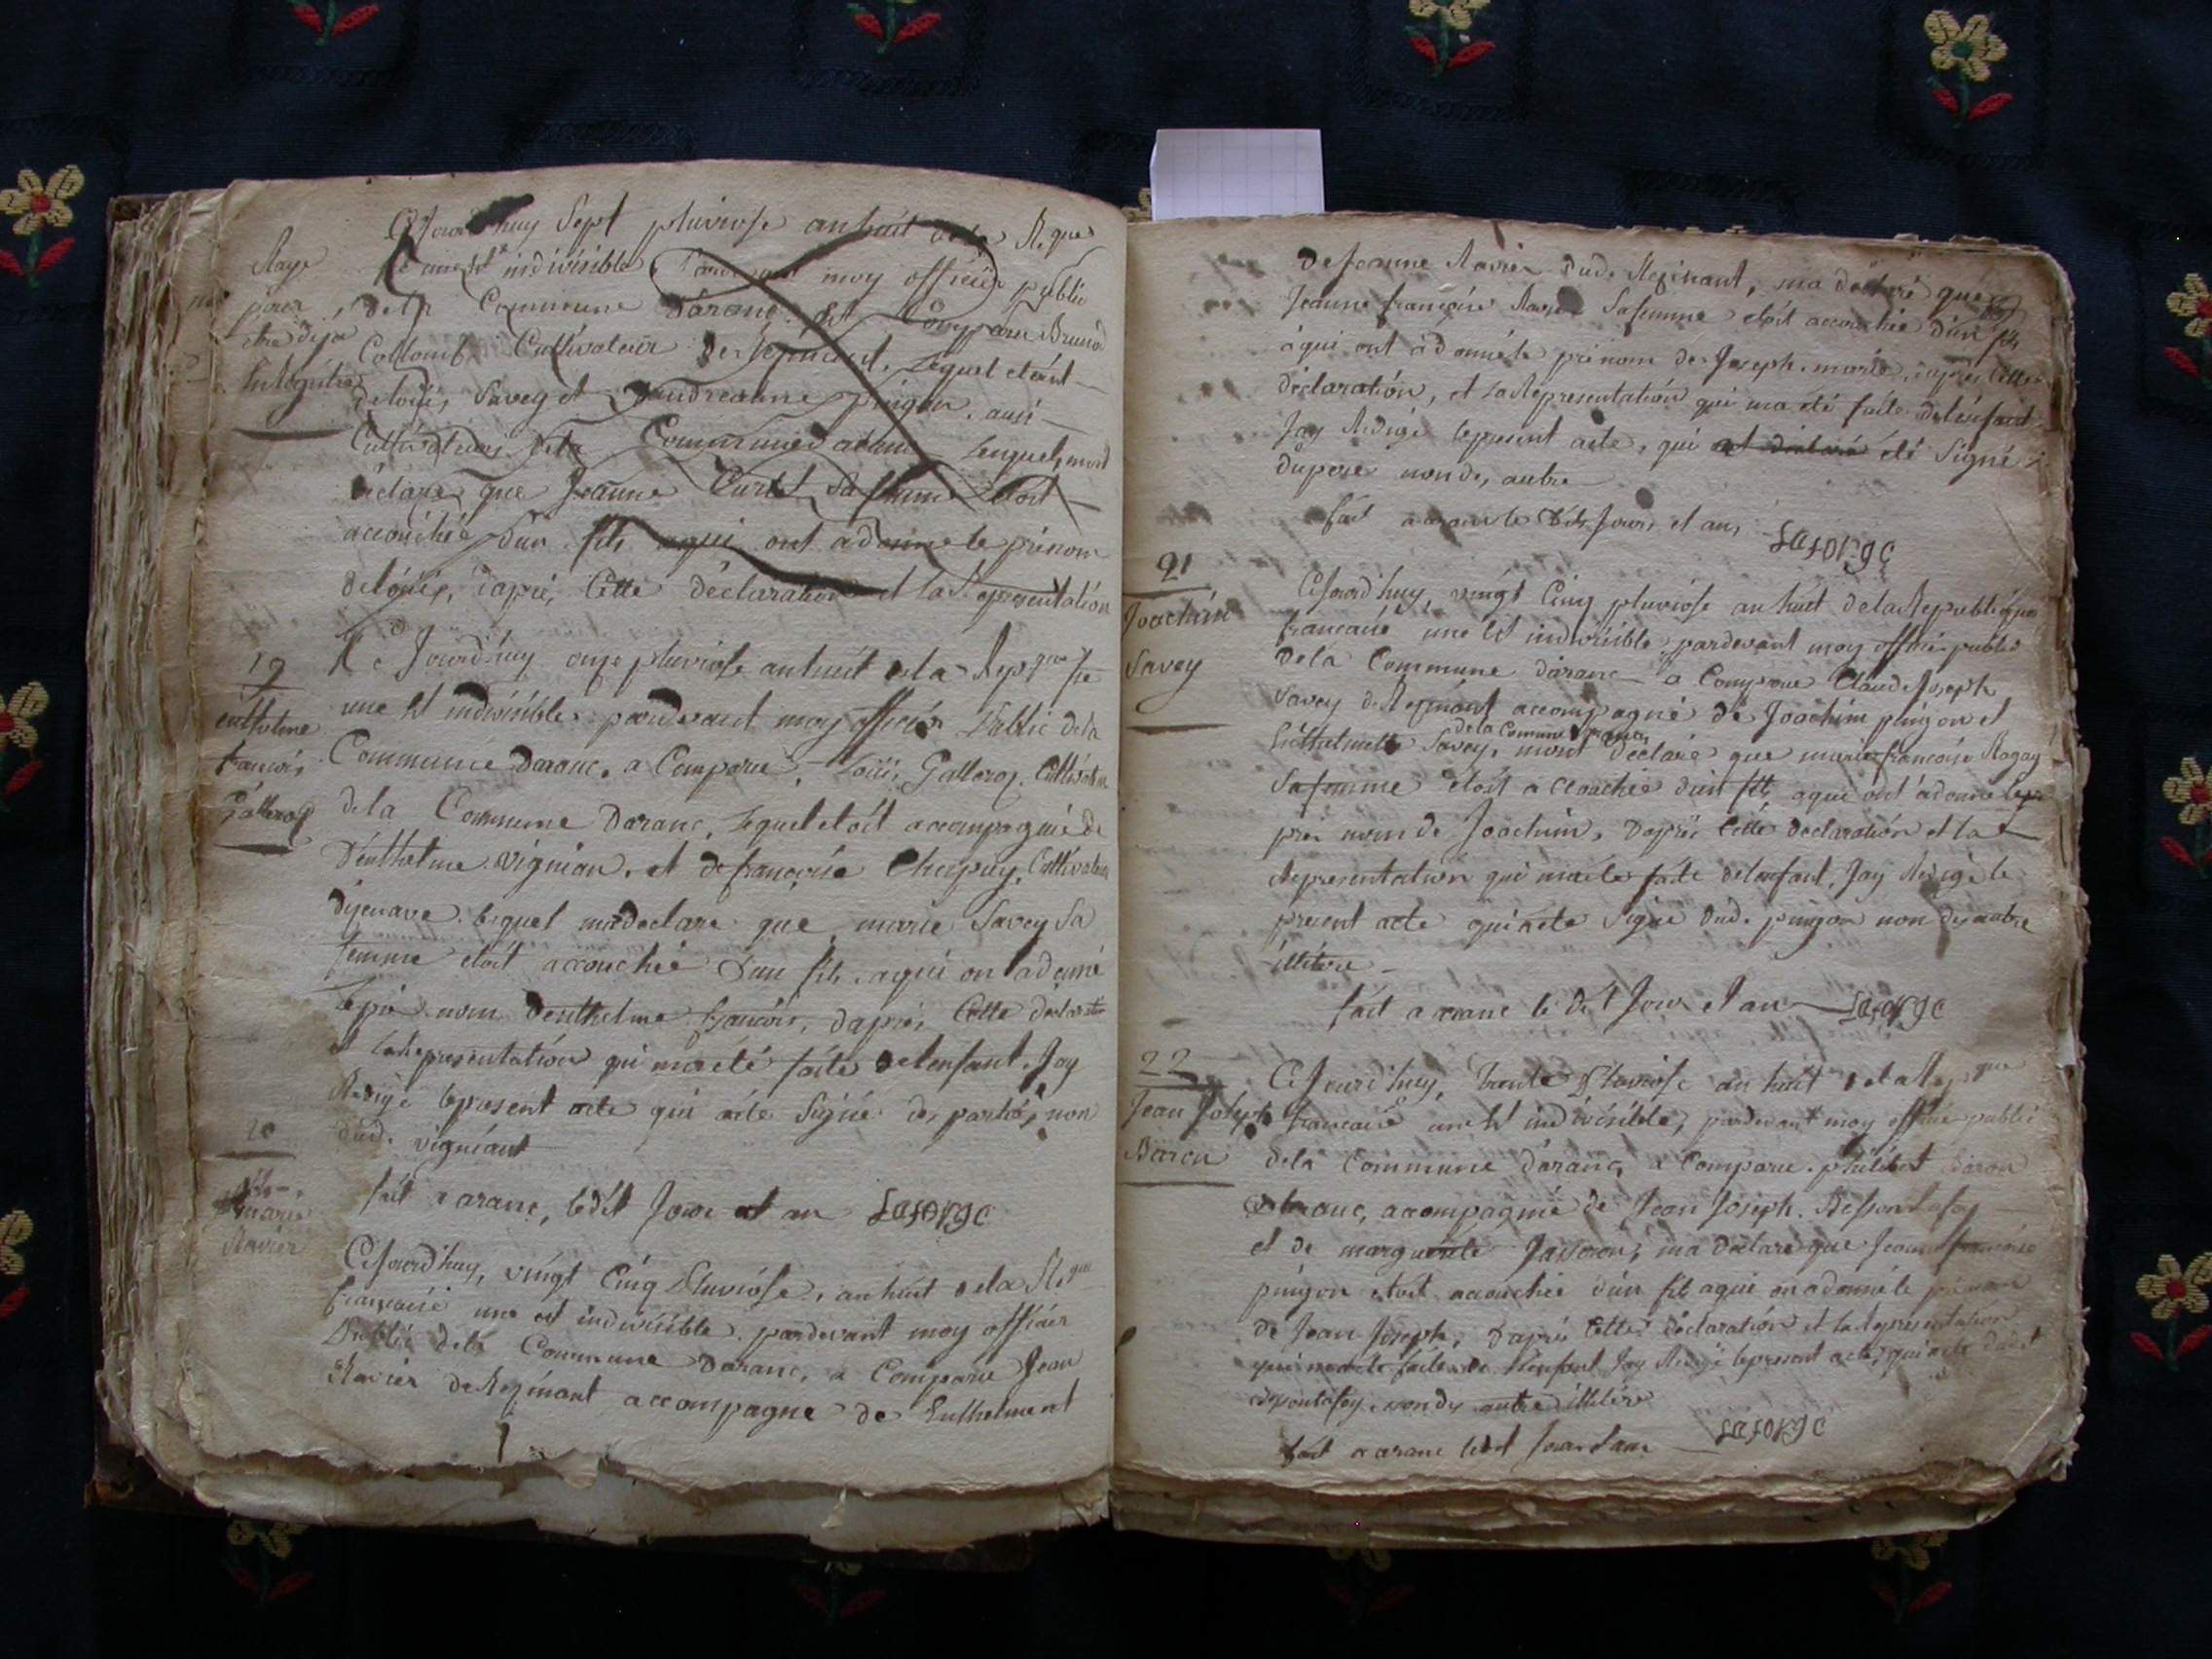 Cejourdhuy Sept pluviose an huit de la Rque
fse une et indivisible pardevant moy officier public
de la Commune Daranc. Est Comparu Brunod
Collomb Cultivateur de Rezinant, Lequel etoint
deloüis Savey et pingon. aussi
Cultivateurs de la Commune daranc Lequel, ma
déclare que Jeanne Curtet Sa femme etoit
accouchée d'un fils aqui ont adonne le prénom
delouis, dapres Cette déclaration et la Representation
Raye
pour
etre deja
Enlegistre
19
enthelme
francois
Galleroz
Ce Jourd'huy onze pluviose an huit de la Repque fse
une Et indivisible pardevant moy officier Public de la
Commune Daranc. a Comparue, Loüis Galleroz. Cultivateur
de la Commune Daranc, Lequel etoit accompagné de
D'enthelme vignian. et de francoise Chapuy, Cultivateur
dijenave. lequel madeclare que marie Savey Sa
femme etoit accouchée d'un fils. aqui on adonné
Le pré nom denthelme francois, dapres Cette declaration
et la Representation qui ma été faite de lenfant. Jay
Redigé le present acte qui aéte Signé des parties, non
dud. vigniant
fait a aranc, ledit Jour et an Laforge
20
marie
Ravier
Cejourd'huy, vingt Cinq Pluviose, an huit de la Rque
francaise une et indivisible. pardevant moy officier
Public dela Commune Daranc, a Comparue Jean
Ravier de Rezinant accompagne de Enthelme et
de Jeanne Ravier dud. Rezinant, ma déclaré que
Jeanne françoise Sa femme etoit accouchée d'un fils
àqui ont àdonné le prénom de Joseph. marie, dapres Cette
déclaration, et La Representation qui ma été faite de lenfant
Jay Redigé le present acte, qui été Signé
dupere non des autre
fait a aranc le dit Jour et an, Laforge
21
Joachim
Savey
Cejourd'huy, vingt Cinq pluviose an huit de la Republique
francaise une Et indivisible, pardevant moy officier public
dela Commune daranc a Comparue Claude Joseph
Savey de Rezinant accompagné de Joachim pingon et
dela Commune daranc,
Enthelmette Savey, mont déclaré que marie francoise Ragay
Sa femme etoit accouchée d'un fils, aqui ont adonne le
pré nom de Joachim, Dapres Cette declaration et la
Representation qui ma éte faite delenfant, Jay Redigé le
present acte qui aete Signe dud. pingon non des autre
illitere
fait a aranc le dit Jour et an Laforge
22
Jean Joseph
Baron
Cejourd'huy, trente Pluviose an huit de la Repque
francaise une Et indivisible, pardevant moy officier public
dela Commune daranc, a Comparue. philibert Baron
daranc, accompagnié de Jean Joseph. Besson Lafoy
et de marguerite Jaiseron, ma déclaré que Jeanne francoise
pingon etoit accouchée d'un fils aqui on adonné le prénom
de Jean Joseph, Dapres Cette déclaration et la Representation
qui ma éte faite de lenfant Jay Redigé le present acte, qui aete dudit
Besson Lafoy, non des autre illitére
fait a aranc ledit Jour et an Laforge